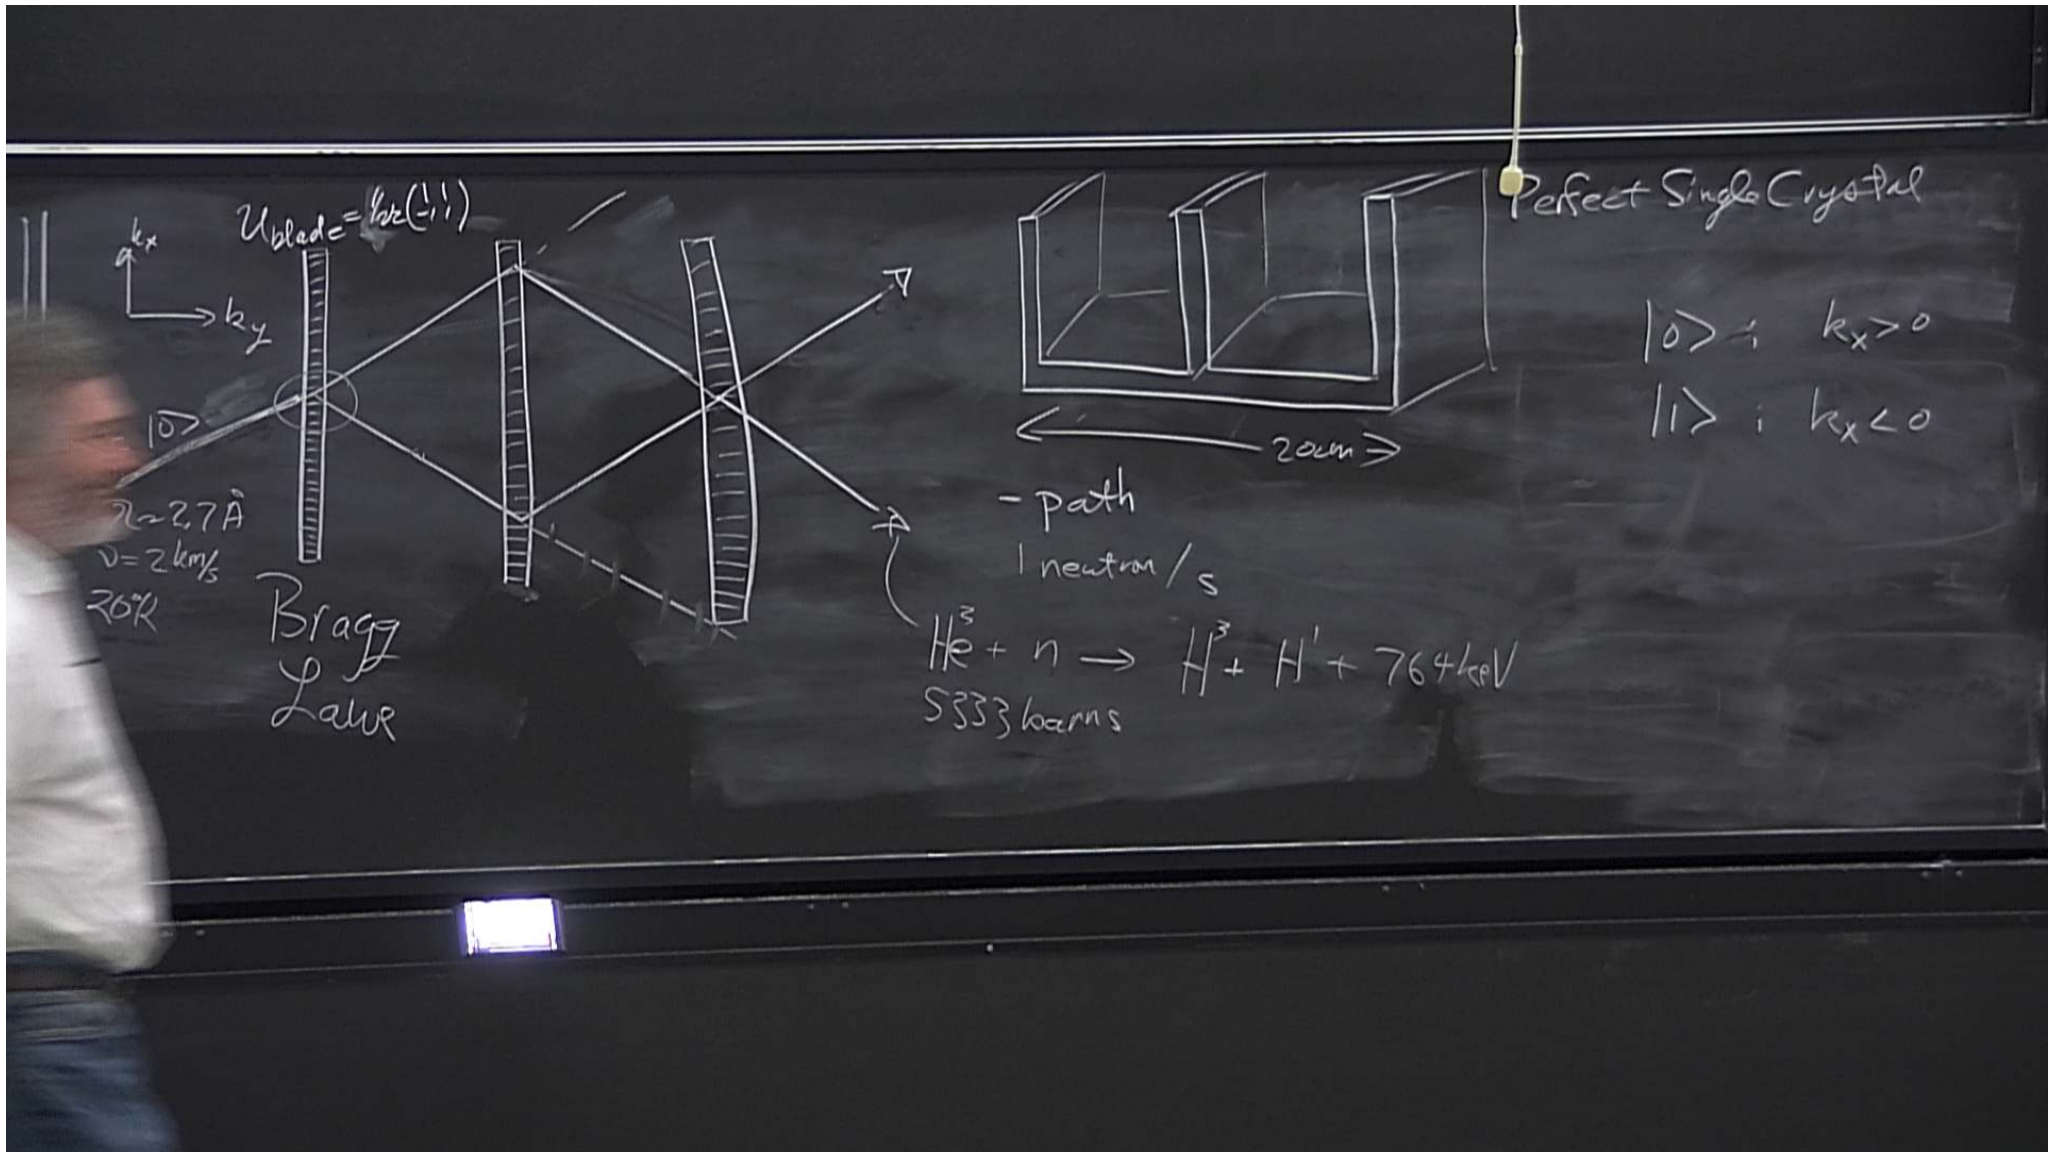 kₓ
U_blade = 1/√2 (1 1; -1 1)
k_y
|0>
λ~2.7 Å
v=2 km/s
20K
Bragg
Laue
Perfect Single Crystal
|0> ; kₓ>0
|1> ; kₓ<0
20cm
- path
1 neutron/s
He³ + n → H³ + H¹ + 764 keV
5333 barns